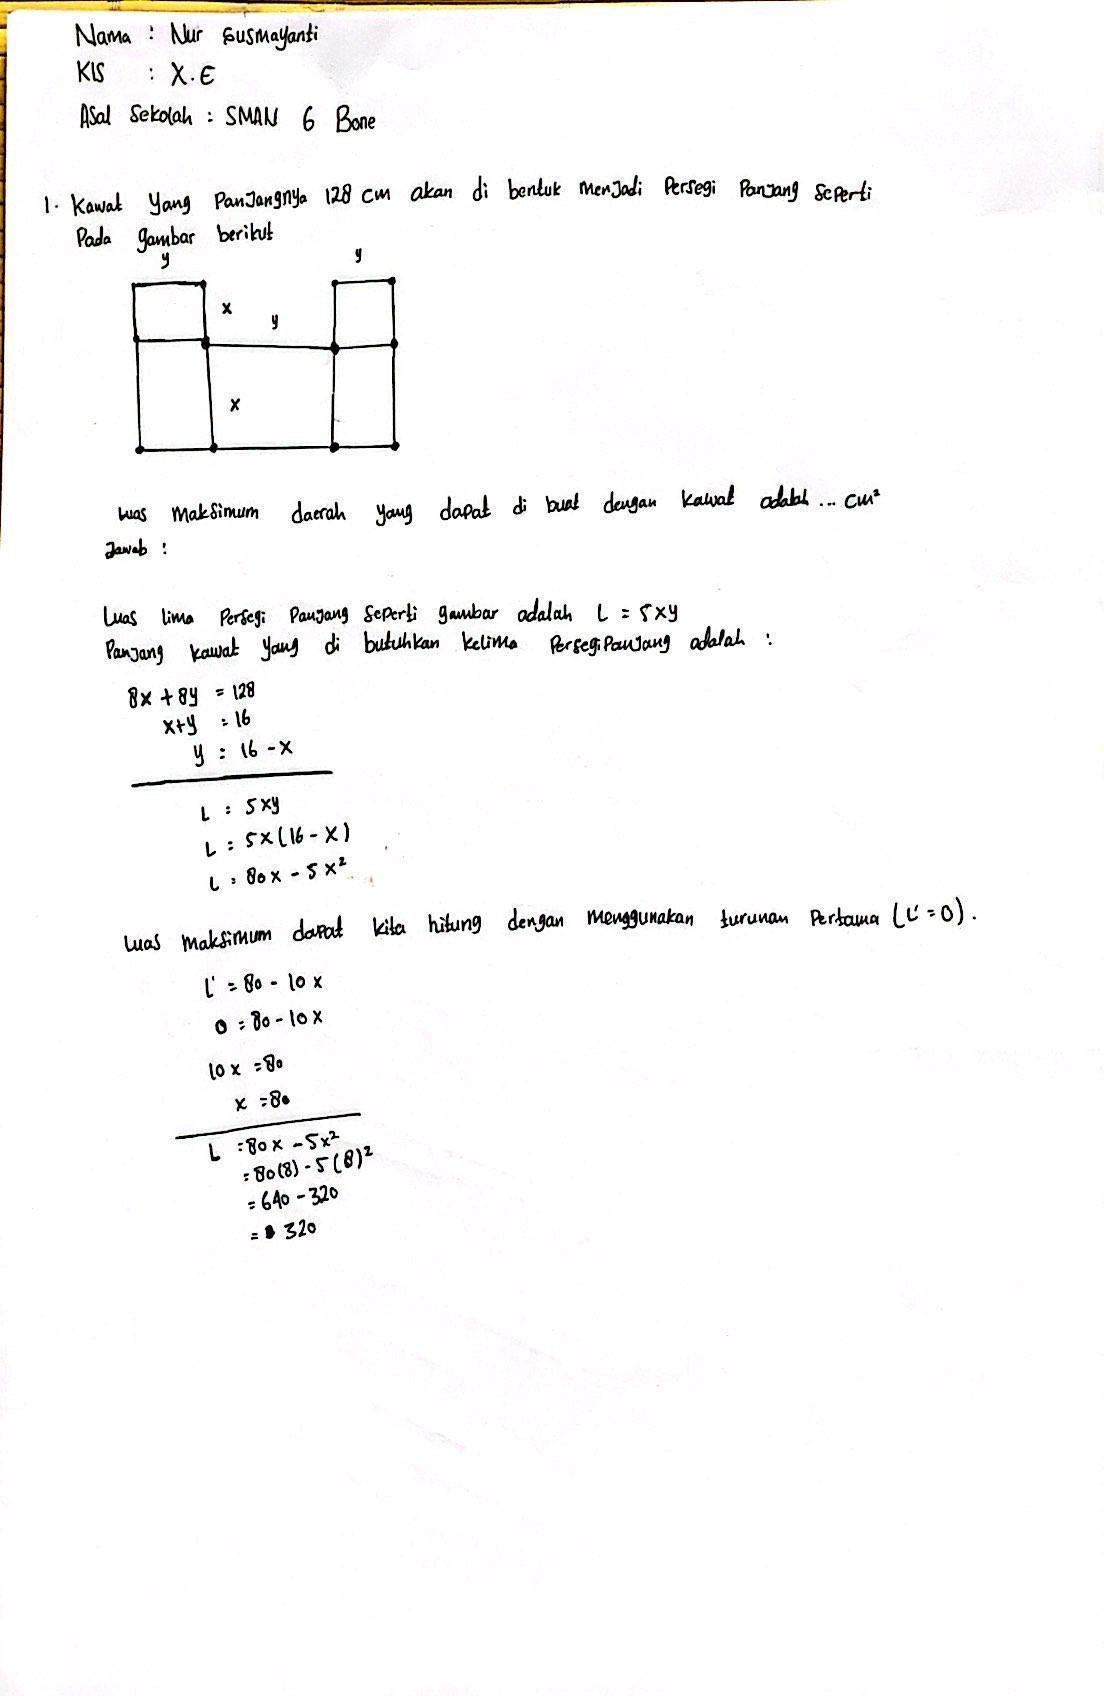 Nama : Nur Susmayanti
Kls : X.E
Asal Sekolah : SMAN 6 Bone
1. Kawat Yang Panjangnya 128 cm akan di bentuk menjadi Persegi Panjang Seperti
Pada gambar berikut
y y
x
y
x
Luas Maksimum daerah yang dapat di buat dengan kawat adalah ... cm²
Jawab :
Luas lima Persegi Panjang Seperti gambar adalah L = 5xy
Panjang kawat yang di butuhkan kelima PersegiPanjang adalah :
8x + 8y = 128
x+y = 16
y = 16 - x
L = 5xy
L = 5x(16 - x)
L = 80x - 5x²
Luas Maksimum dapat kita hitung dengan menggunakan turunan Pertama (L' = 0).
L' = 80 - 10x
0 = 80 - 10x
10x = 80
x = 80
L = 80x - 5x²
= 80(8) - 5(8)²
= 640 - 320
= 320